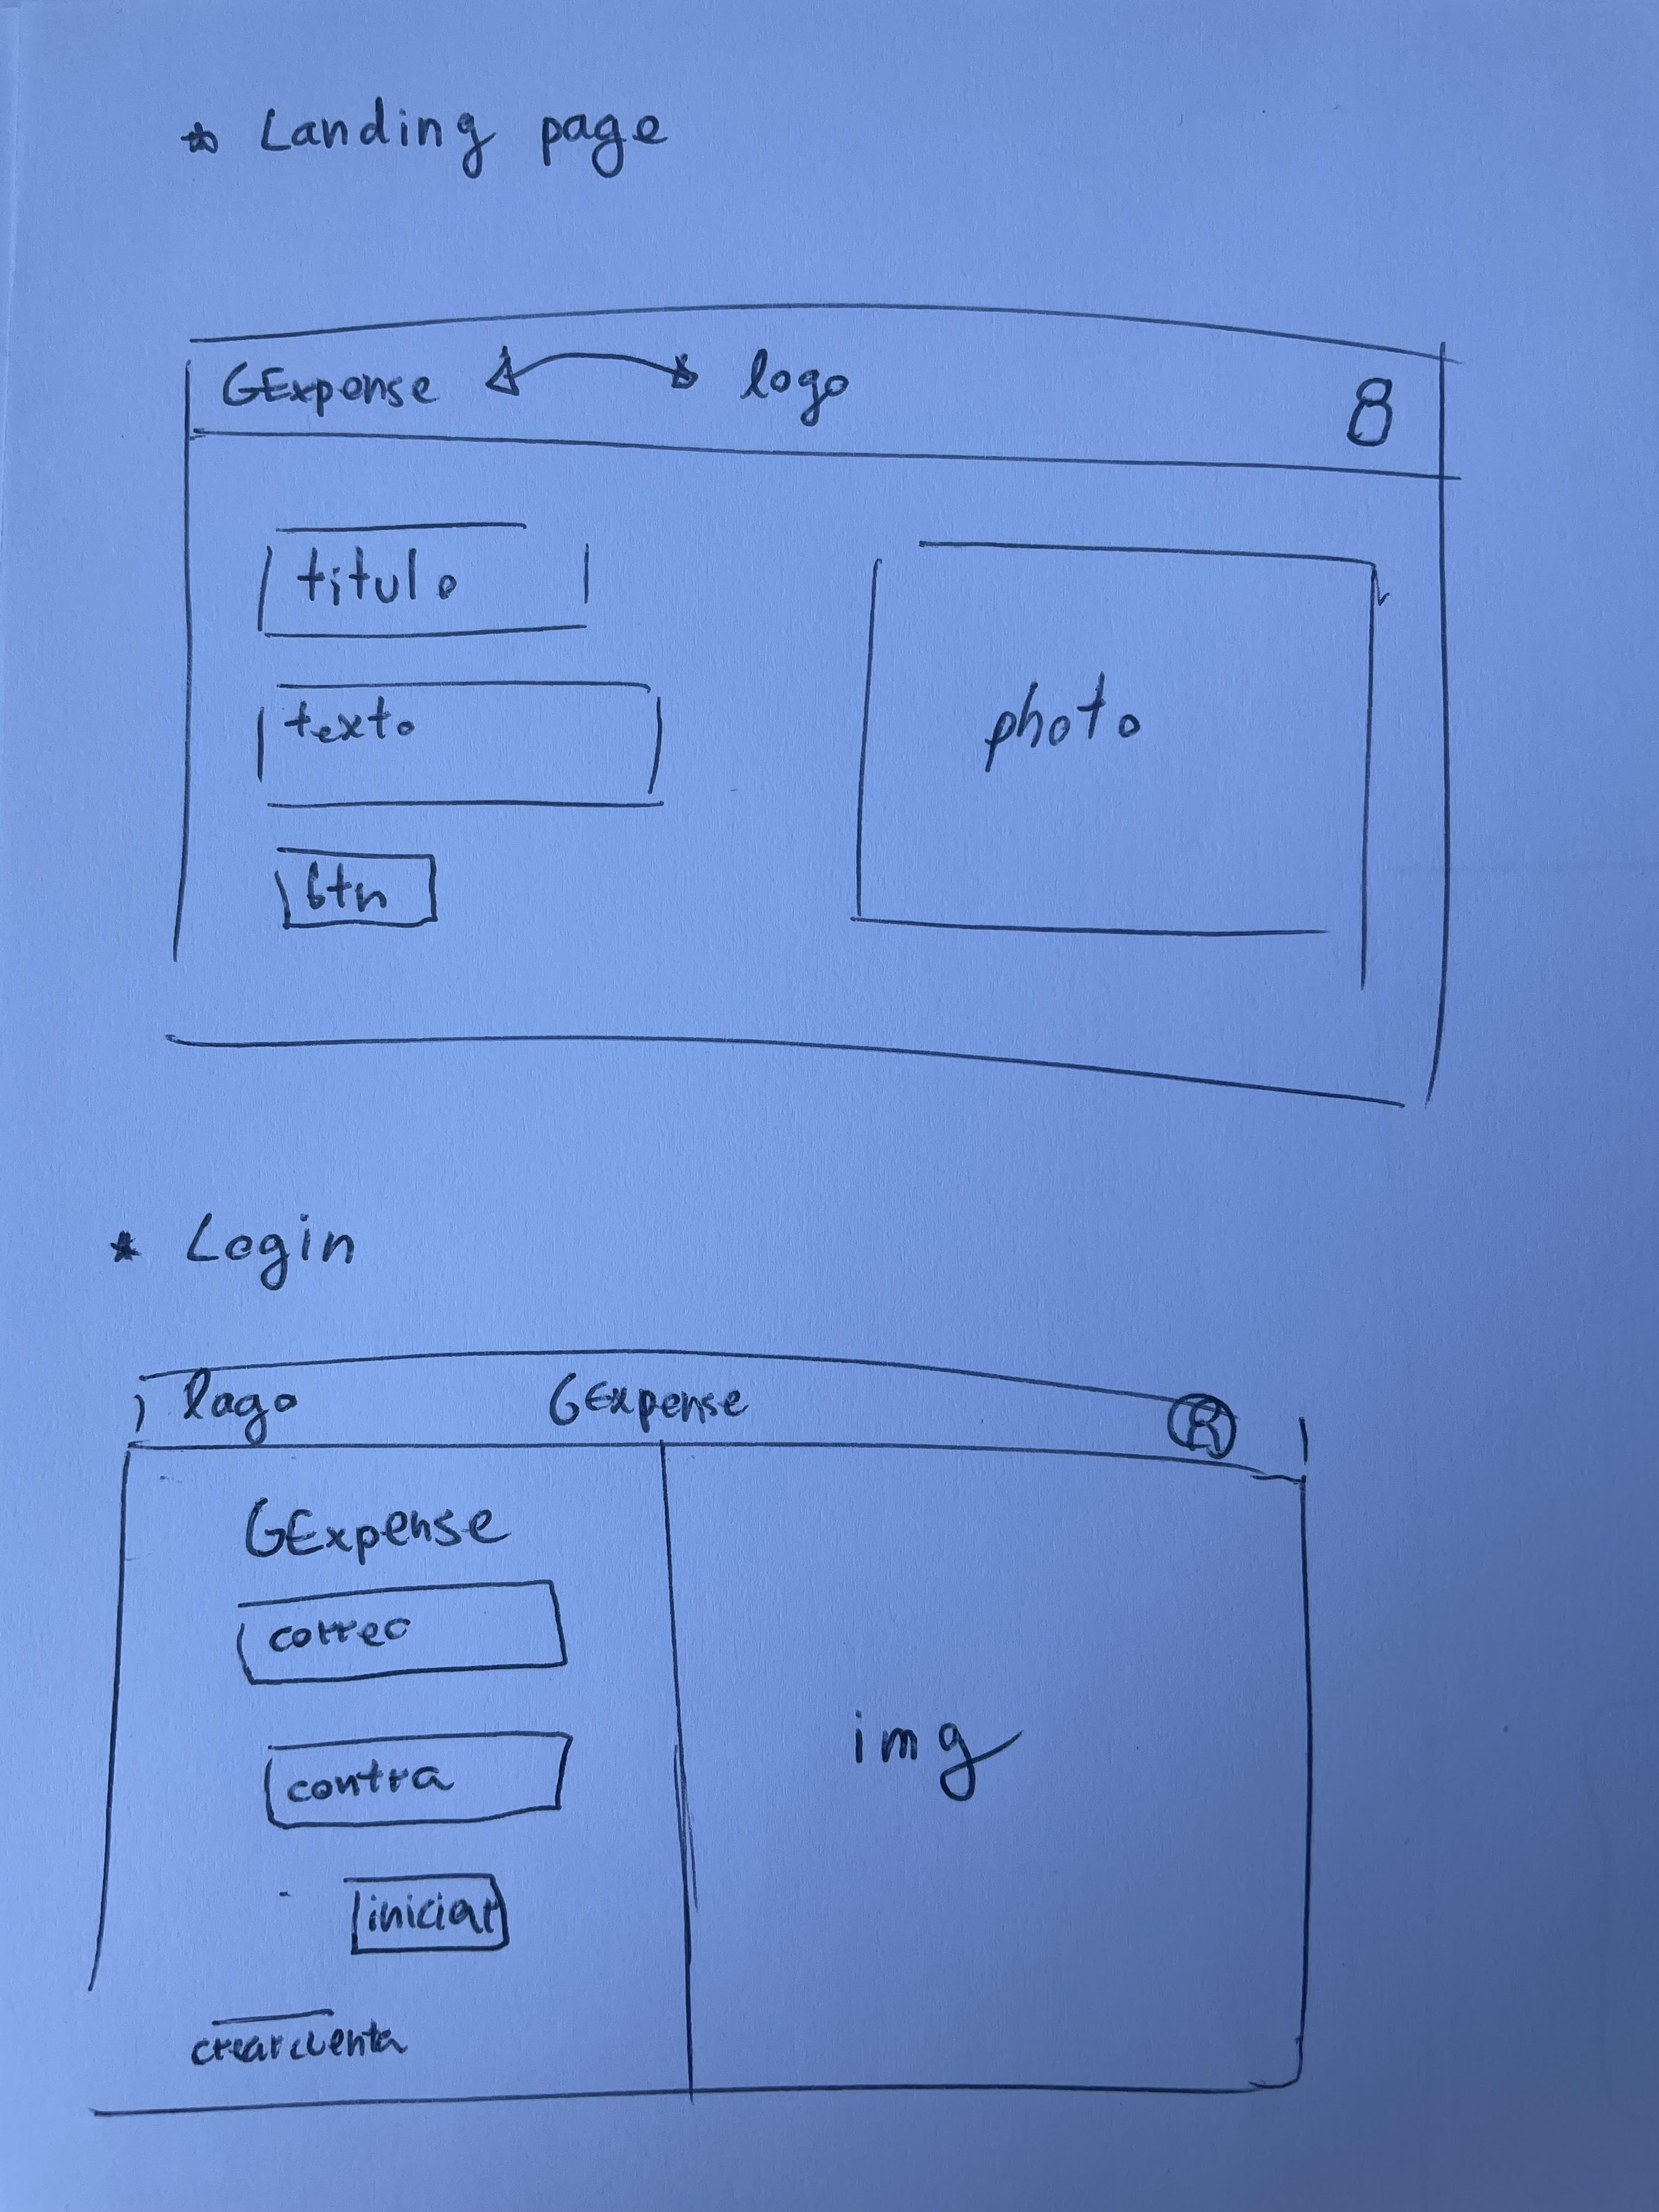 * Landing page
GExpense logo
titulo
texto
photo
btn
* Login
logo GExpense
GExpense
correo
contra
img
iniciar
crear cuenta